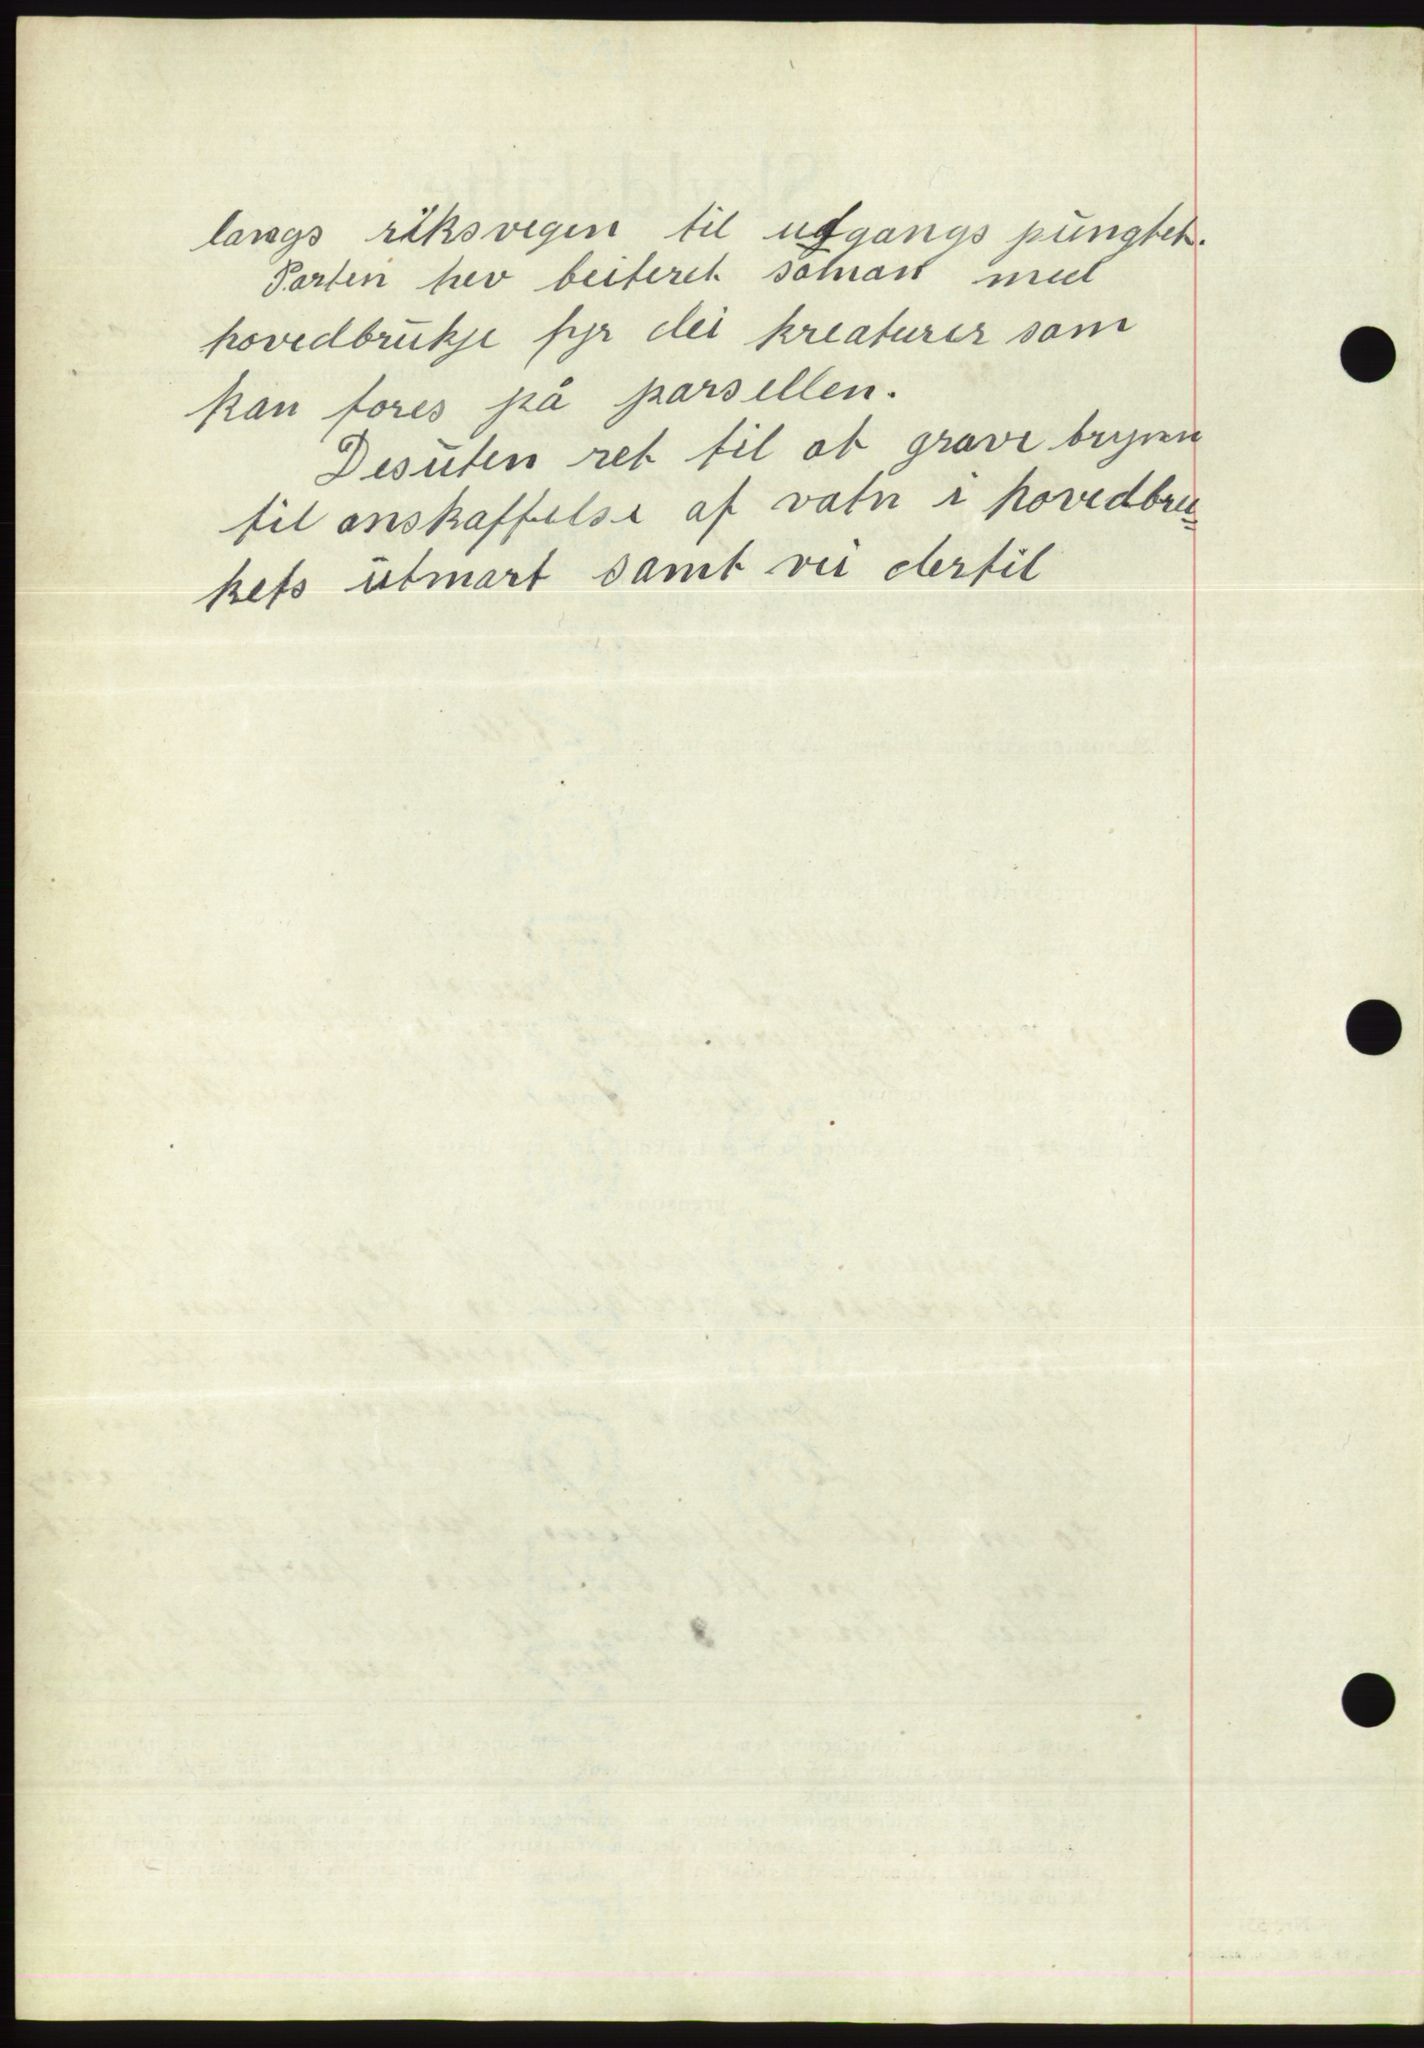 langs riksvegen til utgangs pungtet.
Parten hev beiteret saman med
hovedbrukje fyr dei kreaturer som
kan fores på parsellen.
Desuten ret til at grave brynn
til anskaffelse af vatn i hovedbru-
kets utmart samt vei dertil